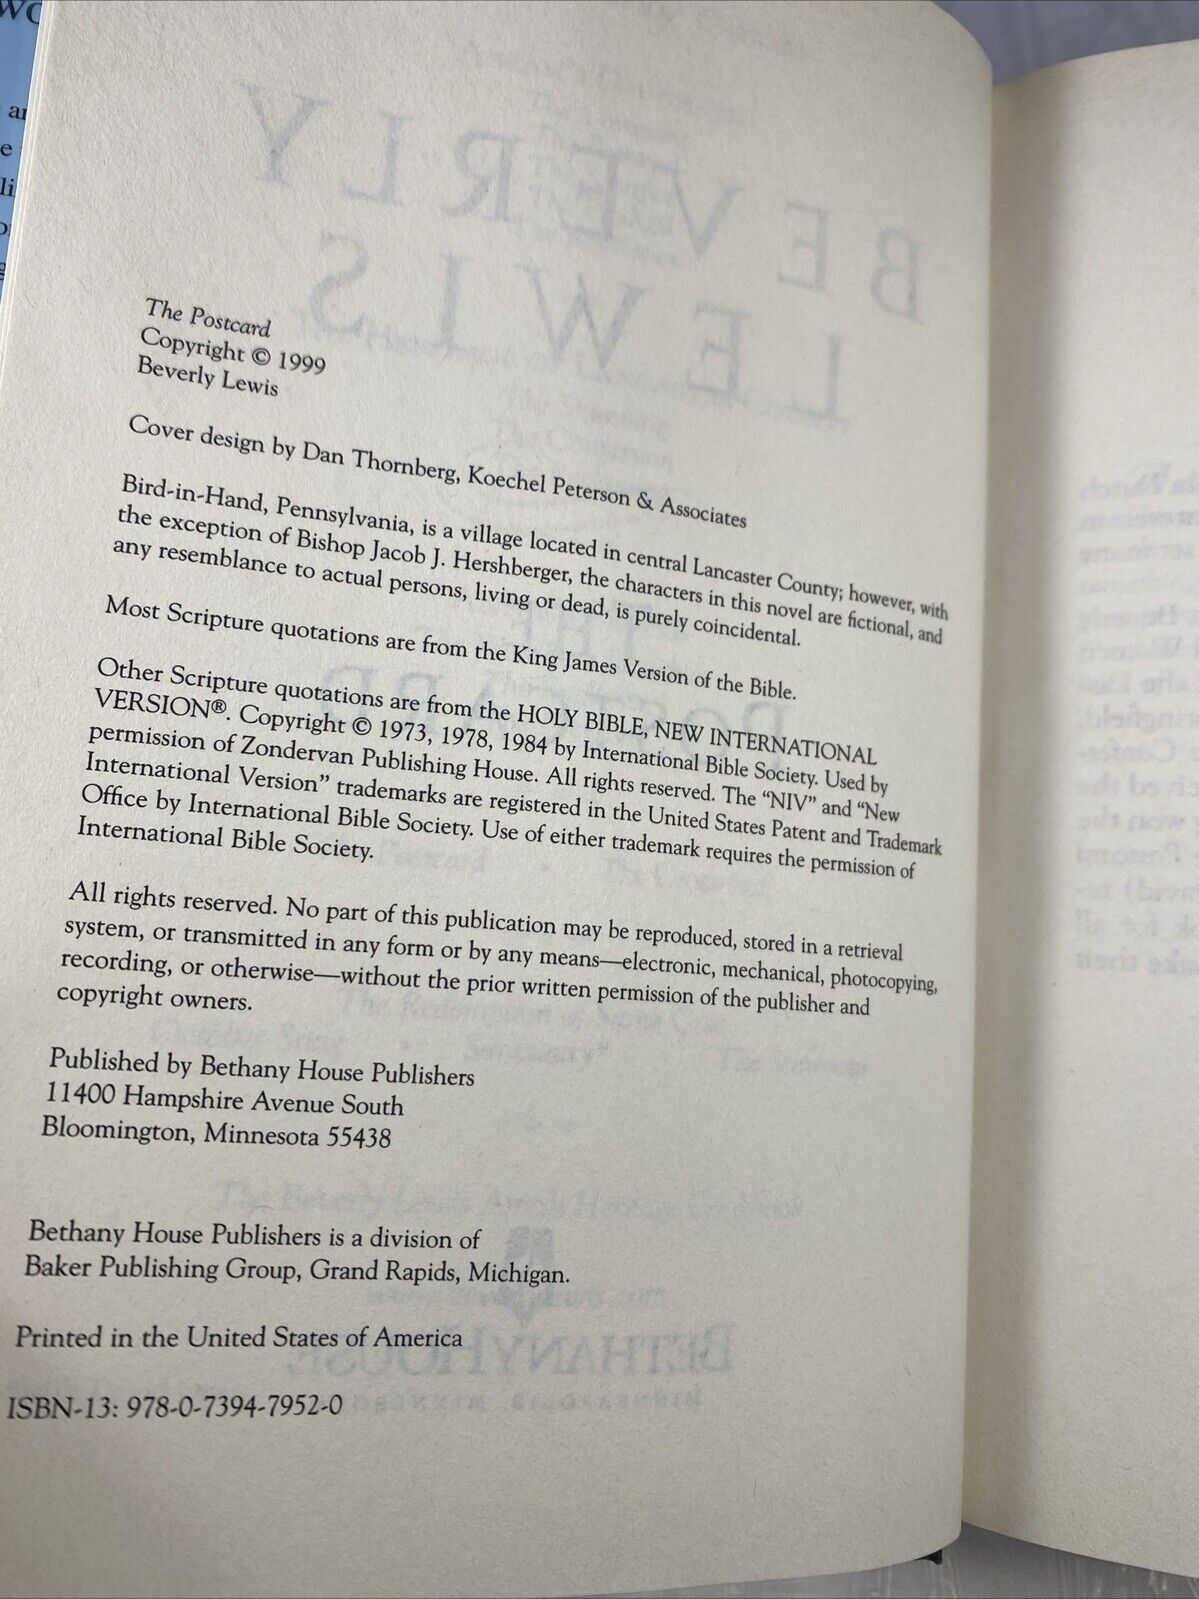 The Postcard
Copyright © 1999
Beverly Lewis
Cover design by Dan Thornberg, Koechel Peterson & Associates
Bird-in-Hand, Pennsylvania, is a village located in central Lancaster County; however, with
the exception of Bishop Jacob J. Hershberger, the characters in this novel are fictional, and
any resemblance to actual persons, living or dead, is purely coincidental.
Most Scripture quotations are from the King James Version of the Bible.
Other Scripture quotations are from the HOLY BIBLE, NEW INTERNATIONAL
VERSION®. Copyright © 1973, 1978, 1984 by International Bible Society. Used by
permission of Zondervan Publishing House. All rights reserved. The “NIV” and “New
International Version” trademarks are registered in the United States Patent and Trademark
Office by International Bible Society. Use of either trademark requires the permission of
International Bible Society.
All rights reserved. No part of this publication may be reproduced, stored in a retrieval
system, or transmitted in any form or by any means—electronic, mechanical, photocopying,
recording, or otherwise—without the prior written permission of the publisher and
copyright owners.
Published by Bethany House Publishers
11400 Hampshire Avenue South
Bloomington, Minnesota 55438
Bethany House Publishers is a division of
Baker Publishing Group, Grand Rapids, Michigan.
Printed in the United States of America
ISBN-13: 978-0-7394-7952-0
BEVERLY
LEWIS
BETHANYHOUSE